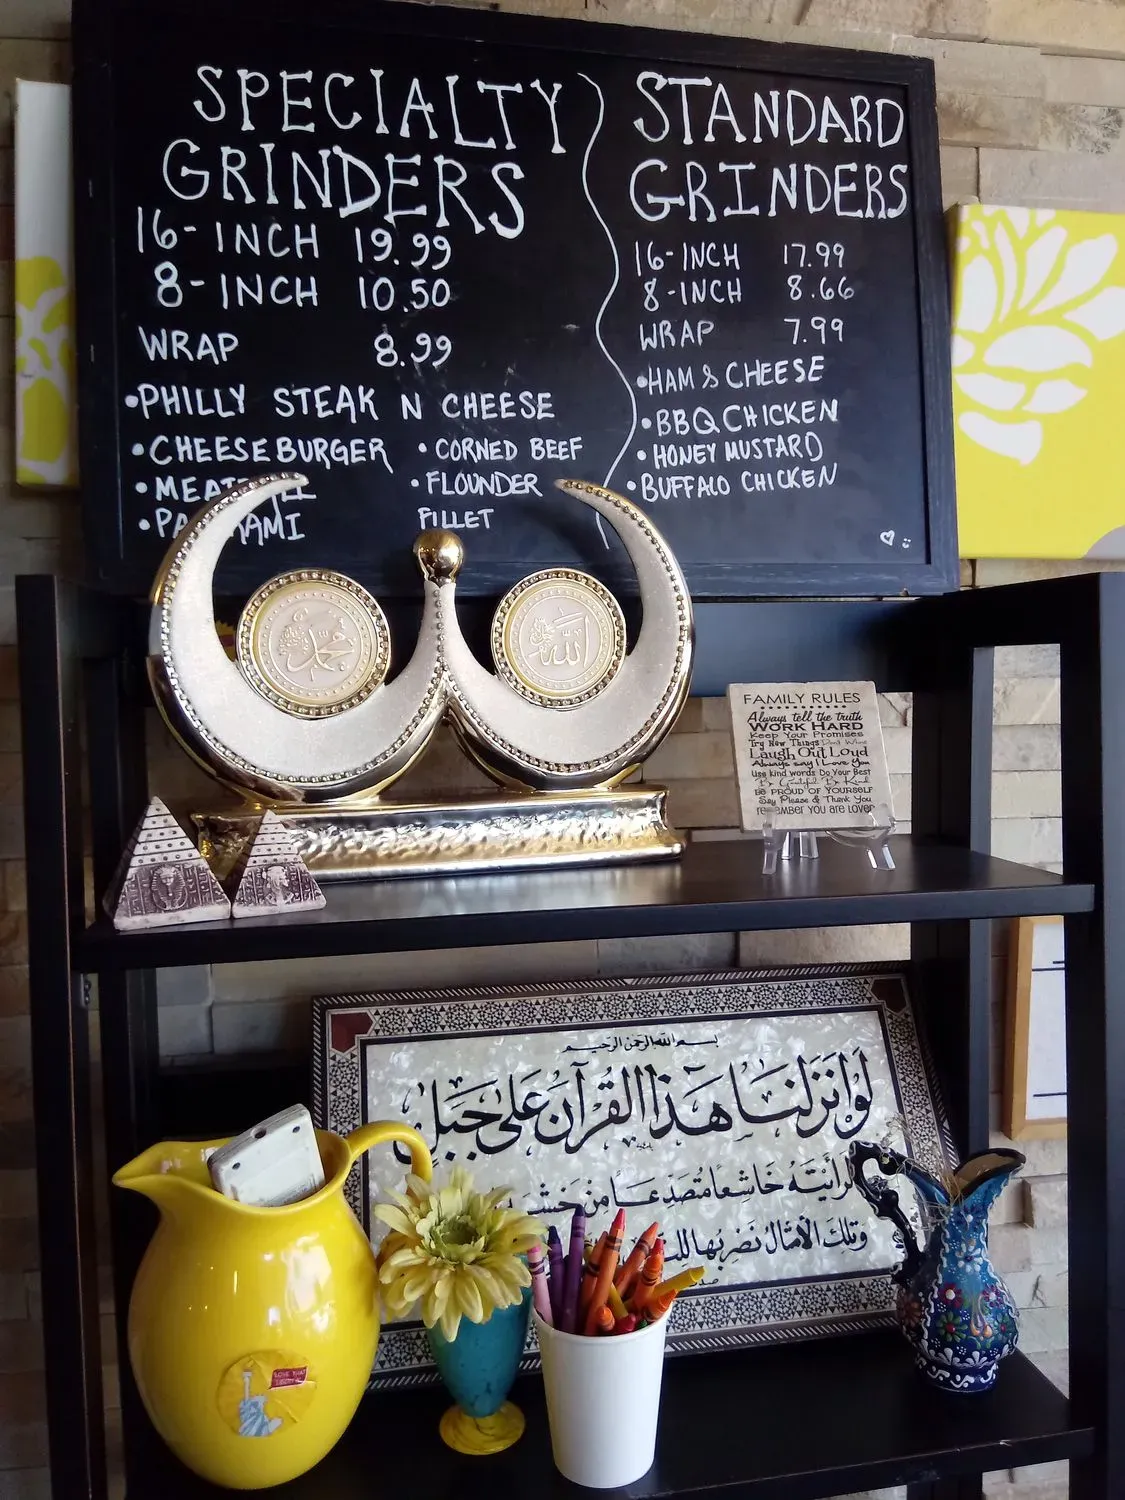 SPECIALTY
GRINDERS
16-INCH 19.99
8-INCH 10.50
WRAP 8.99
•PHILLY STEAK N CHEESE
•CHEESEBURGER
•PA
•CORNED BEEF
•FLOUNDER
FILLET
STANDARD
GRINDERS
16-INCH 17.99
8-INCH 8.66
WRAP 7.99
•HAM & CHEESE
•BBQ CHICKEN
•HONEY MUSTARD
•BUFFALO CHICKEN
محمد
الله
FAMILY RULES
Always tell the truth
WORK HARD
Keep Your Promises
Try New Things Don't Whine
Laugh Out Loud
Always say I Love You
Use kind words Do Your Best
Be Grateful Be Kind
BE PROUD OF YOURSELF
Say Please & Thank You
REMEMBER YOU ARE LOVED
بسم الله الرحمن الرحيم
لَوْ أَنْزَلْنَا هَذَا الْقُرْآنَ عَلَى جَبَلٍ
خَاشِعًا مُتَصَدِّعًا مِنْ خَشْيَةِ
وَتِلْكَ الْأَمْثَالُ نَضْرِبُهَا